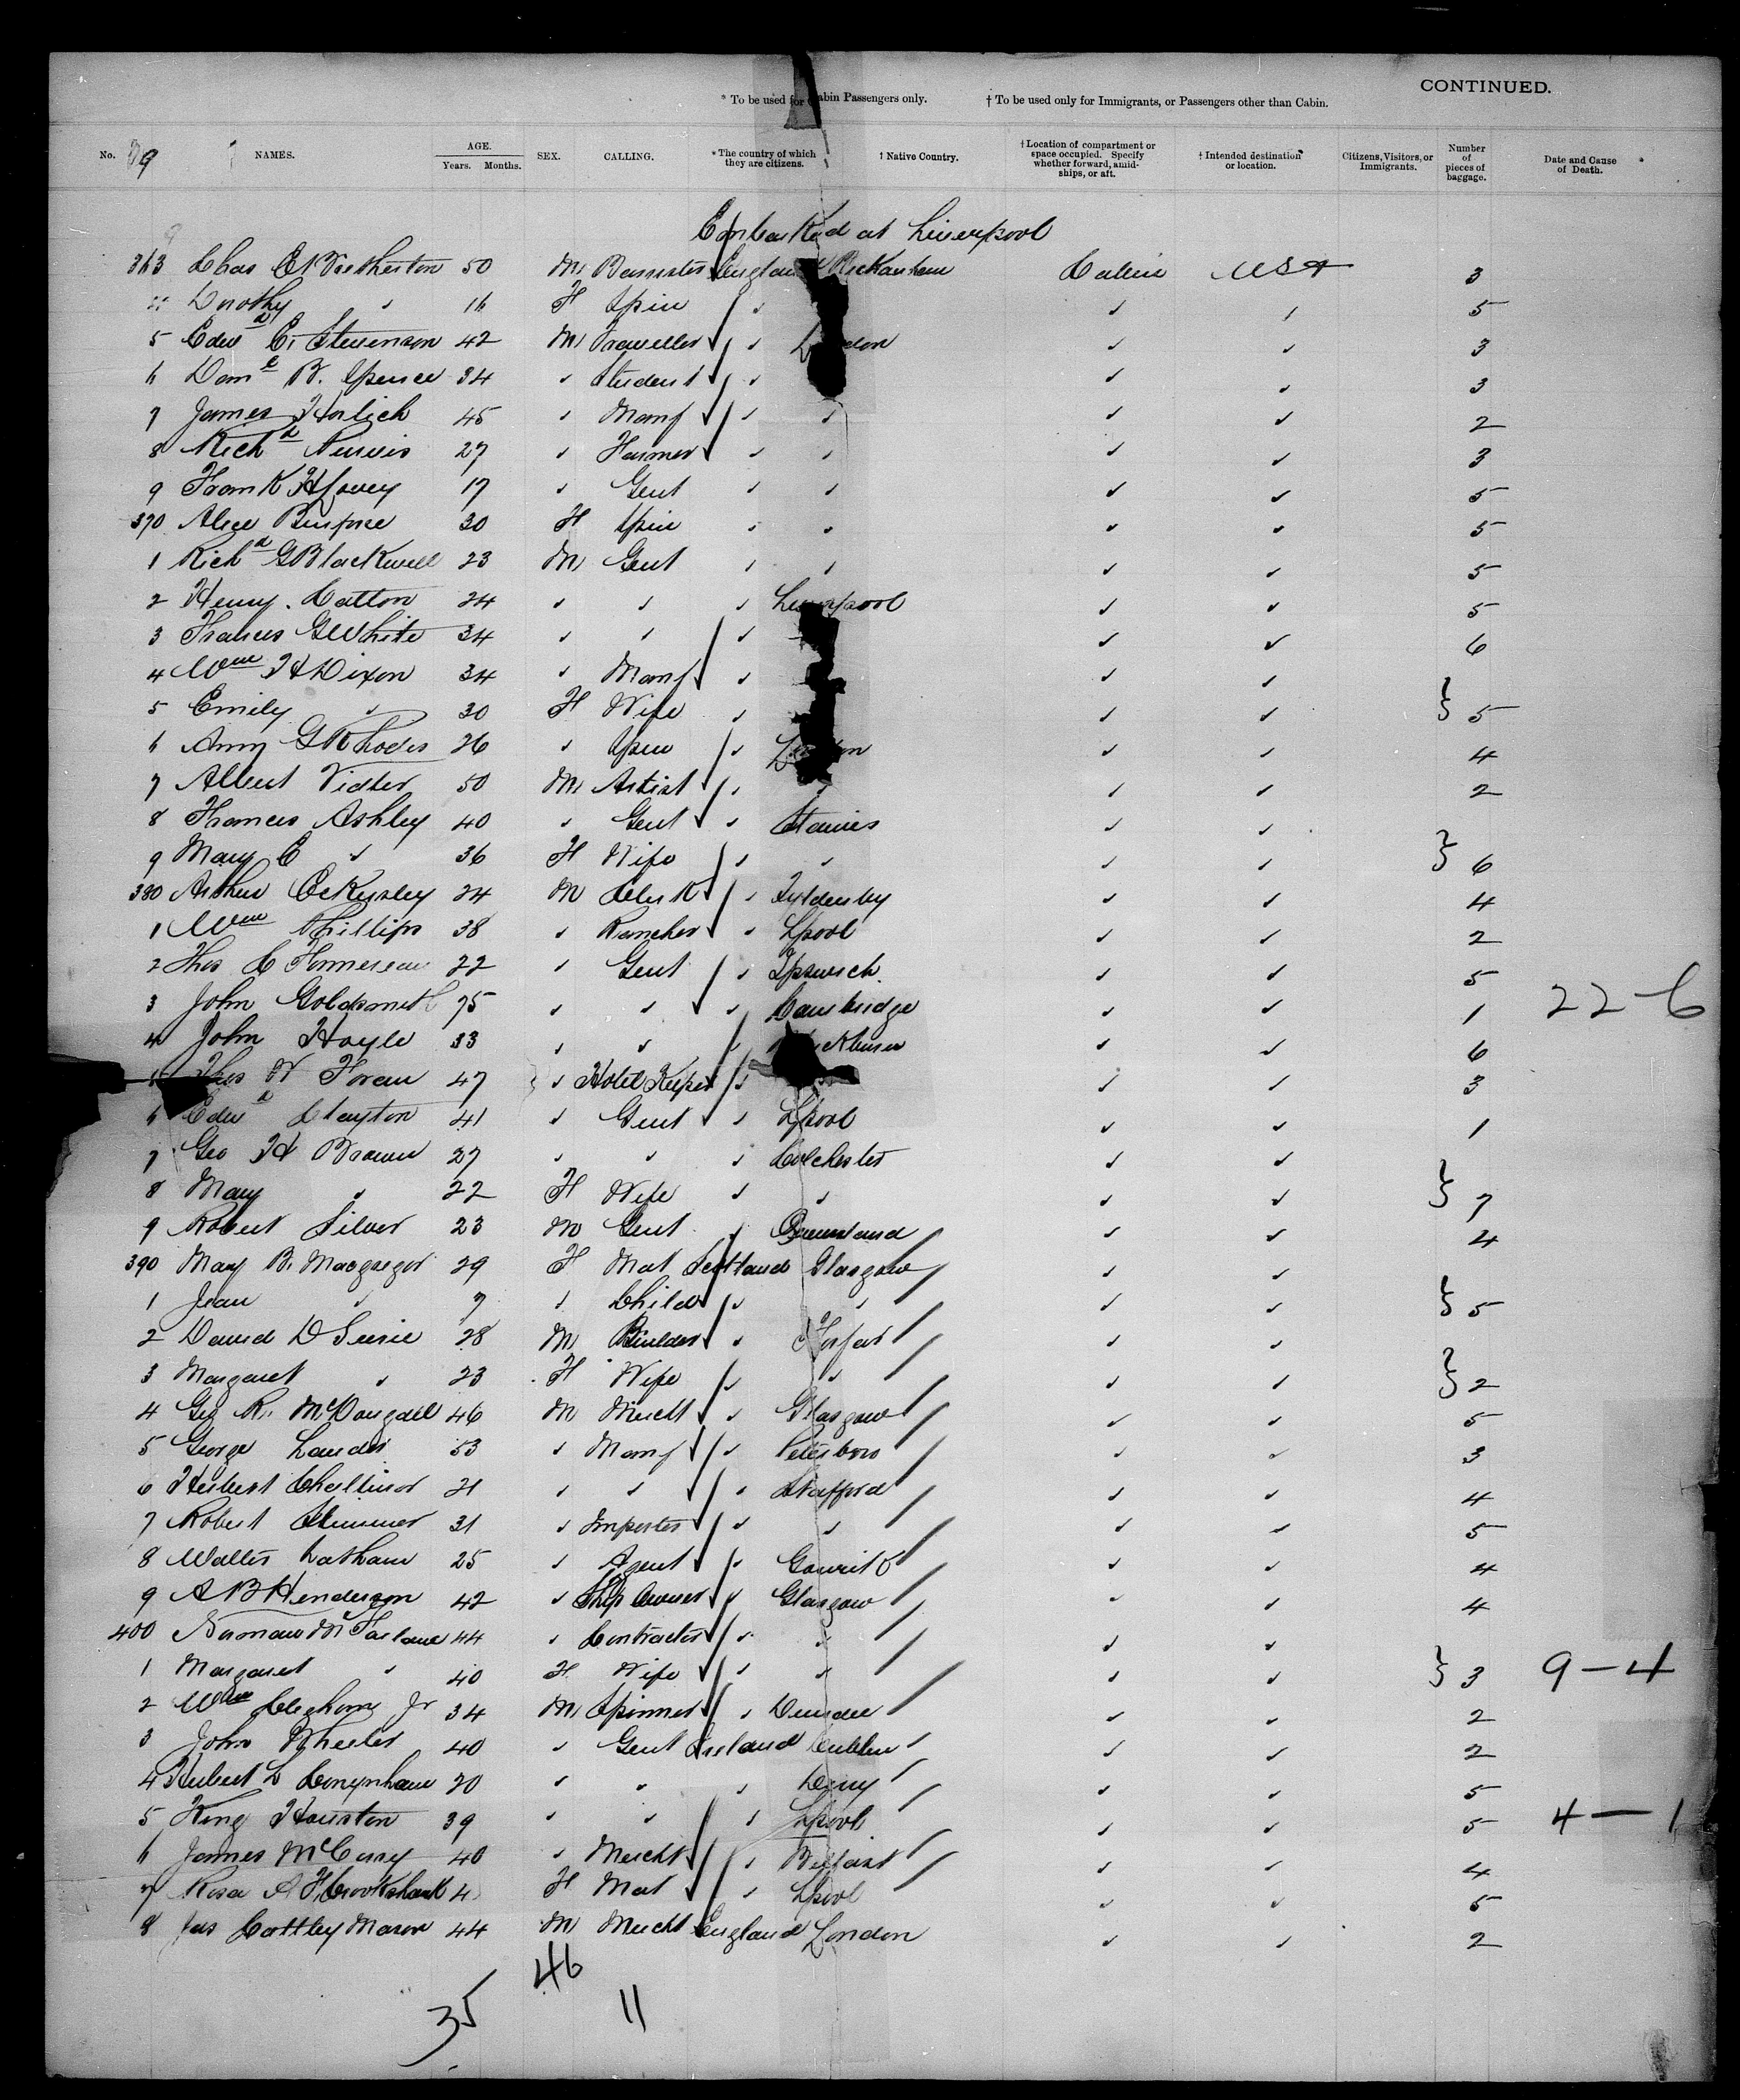 CONTINUED.
* To be used for Cabin Passengers only. † To be used only for Immigrants, or Passengers other than Cabin.
No. NAMES. AGE. Years. Months. SEX. CALLING. * The country of which they are citizens. † Native Country. † Location of compartment or space occupied. Specify whether forward, amid-ships, or aft. † Intended destination or location. Citizens, Visitors, or Immigrants. Number of pieces of baggage. Date and Cause of Death.
Embarked at Liverpool
363 Chas 50 M Barrister England Cabin USA 3
Dorothy " 16 F Spin " " " 5
5 Edwd C. Stevenson 42 M Traveller " London " " 3
6 B. Spence 34 " Student " " " 3
7 James Horlich 45 " Manf " " " " 2
8 Richd Purvis 27 " Farmer " " " " 3
9 Frank 17 " Gent " " " " 5
370 Alice 30 F Spin " " " " 5
1 Richd G Blackwell 23 M Gent " " " " 5
2 Henry Catton 24 " " " Liverpool " " 5
3 Francis G White 34 " " " " " 6
4 Wm H Dixon 34 " Manf " " "
5 Emily " 30 F Wife " " " } 5
6 Amy G Rhodes 26 " Spin " London " " 4
7 Albert 50 M Artist " " " " 2
8 Frances Ashley 40 " Gent " Staines " "
9 Mary E " 36 F Wife " " " " } 6
380 Arthur Eckersley 24 M Clerk " Tyldesley " " 4
1 Wm Phillips 38 " Rancher " Lpool " " 2
2 Thos C 22 " Gent " Ipswich " " 5
3 John Goldsmith 75 " " " Cambridge " " 1 22-6
4 John Hoyle 33 " " " " " 6
Thos W Foran 47 " Hotel Keeper " " " 3
6 Edwd Clayton 41 " Gent " Lpool " " 1
7 Geo H Brown 27 " " " Colchester " "
8 Mary " 22 F Wife " " " " } 7
9 Robert Silver 23 M Gent " Queensland " " 4
390 Mary B. Macgregor 29 F Mat Scotland Glasgow " "
1 Jean " 7 " Child " " " " } 5
2 David D 28 M Builder " Forfar " "
3 Margaret " 23 F Wife " " " " } 2
4 Geo R. McDougall 46 M Mercht " Glasgow " " 5
5 George Lauder 53 " Manf " Peterboro " " 3
6 Herbert Challinor 21 " " " Stafford " " 4
7 Robert 31 " Importer " " " " 5
8 Walter Latham 25 " Agent " " " 4
9 A B Henderson 42 " Ship Owner " Glasgow " " 4
400 Norman McFarlane 44 " Contractor " " " "
1 Margaret " 40 F Wife " " " " } 3 9-4
2 Wm Cleghorn Jr 34 M Spinner " Dundee " " 2
3 John Wheeler 40 " Gent Ireland Dublin " " 2
4 Hubert L Conynham 20 " " " Derry " " 5
5 King Houston 39 " " " Lpool " " 5 4-1
6 James McCurry 40 " Mercht " Belfast " " 4
7 Rosa A F Crookshank F Mat " Lpool " " 5
8 Jas Cottley Mason 44 M Mercht England London " " 2
46
35 11